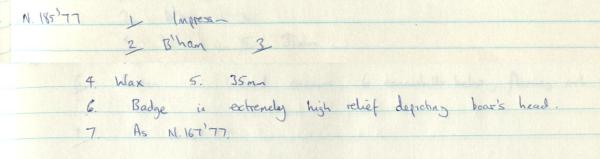 N. 185'77 1 Impression
2 B'ham 3
4. Wax 5. 35mm
6. Badge in extremely high relief depicting boar's head.
7. As N.167'77.